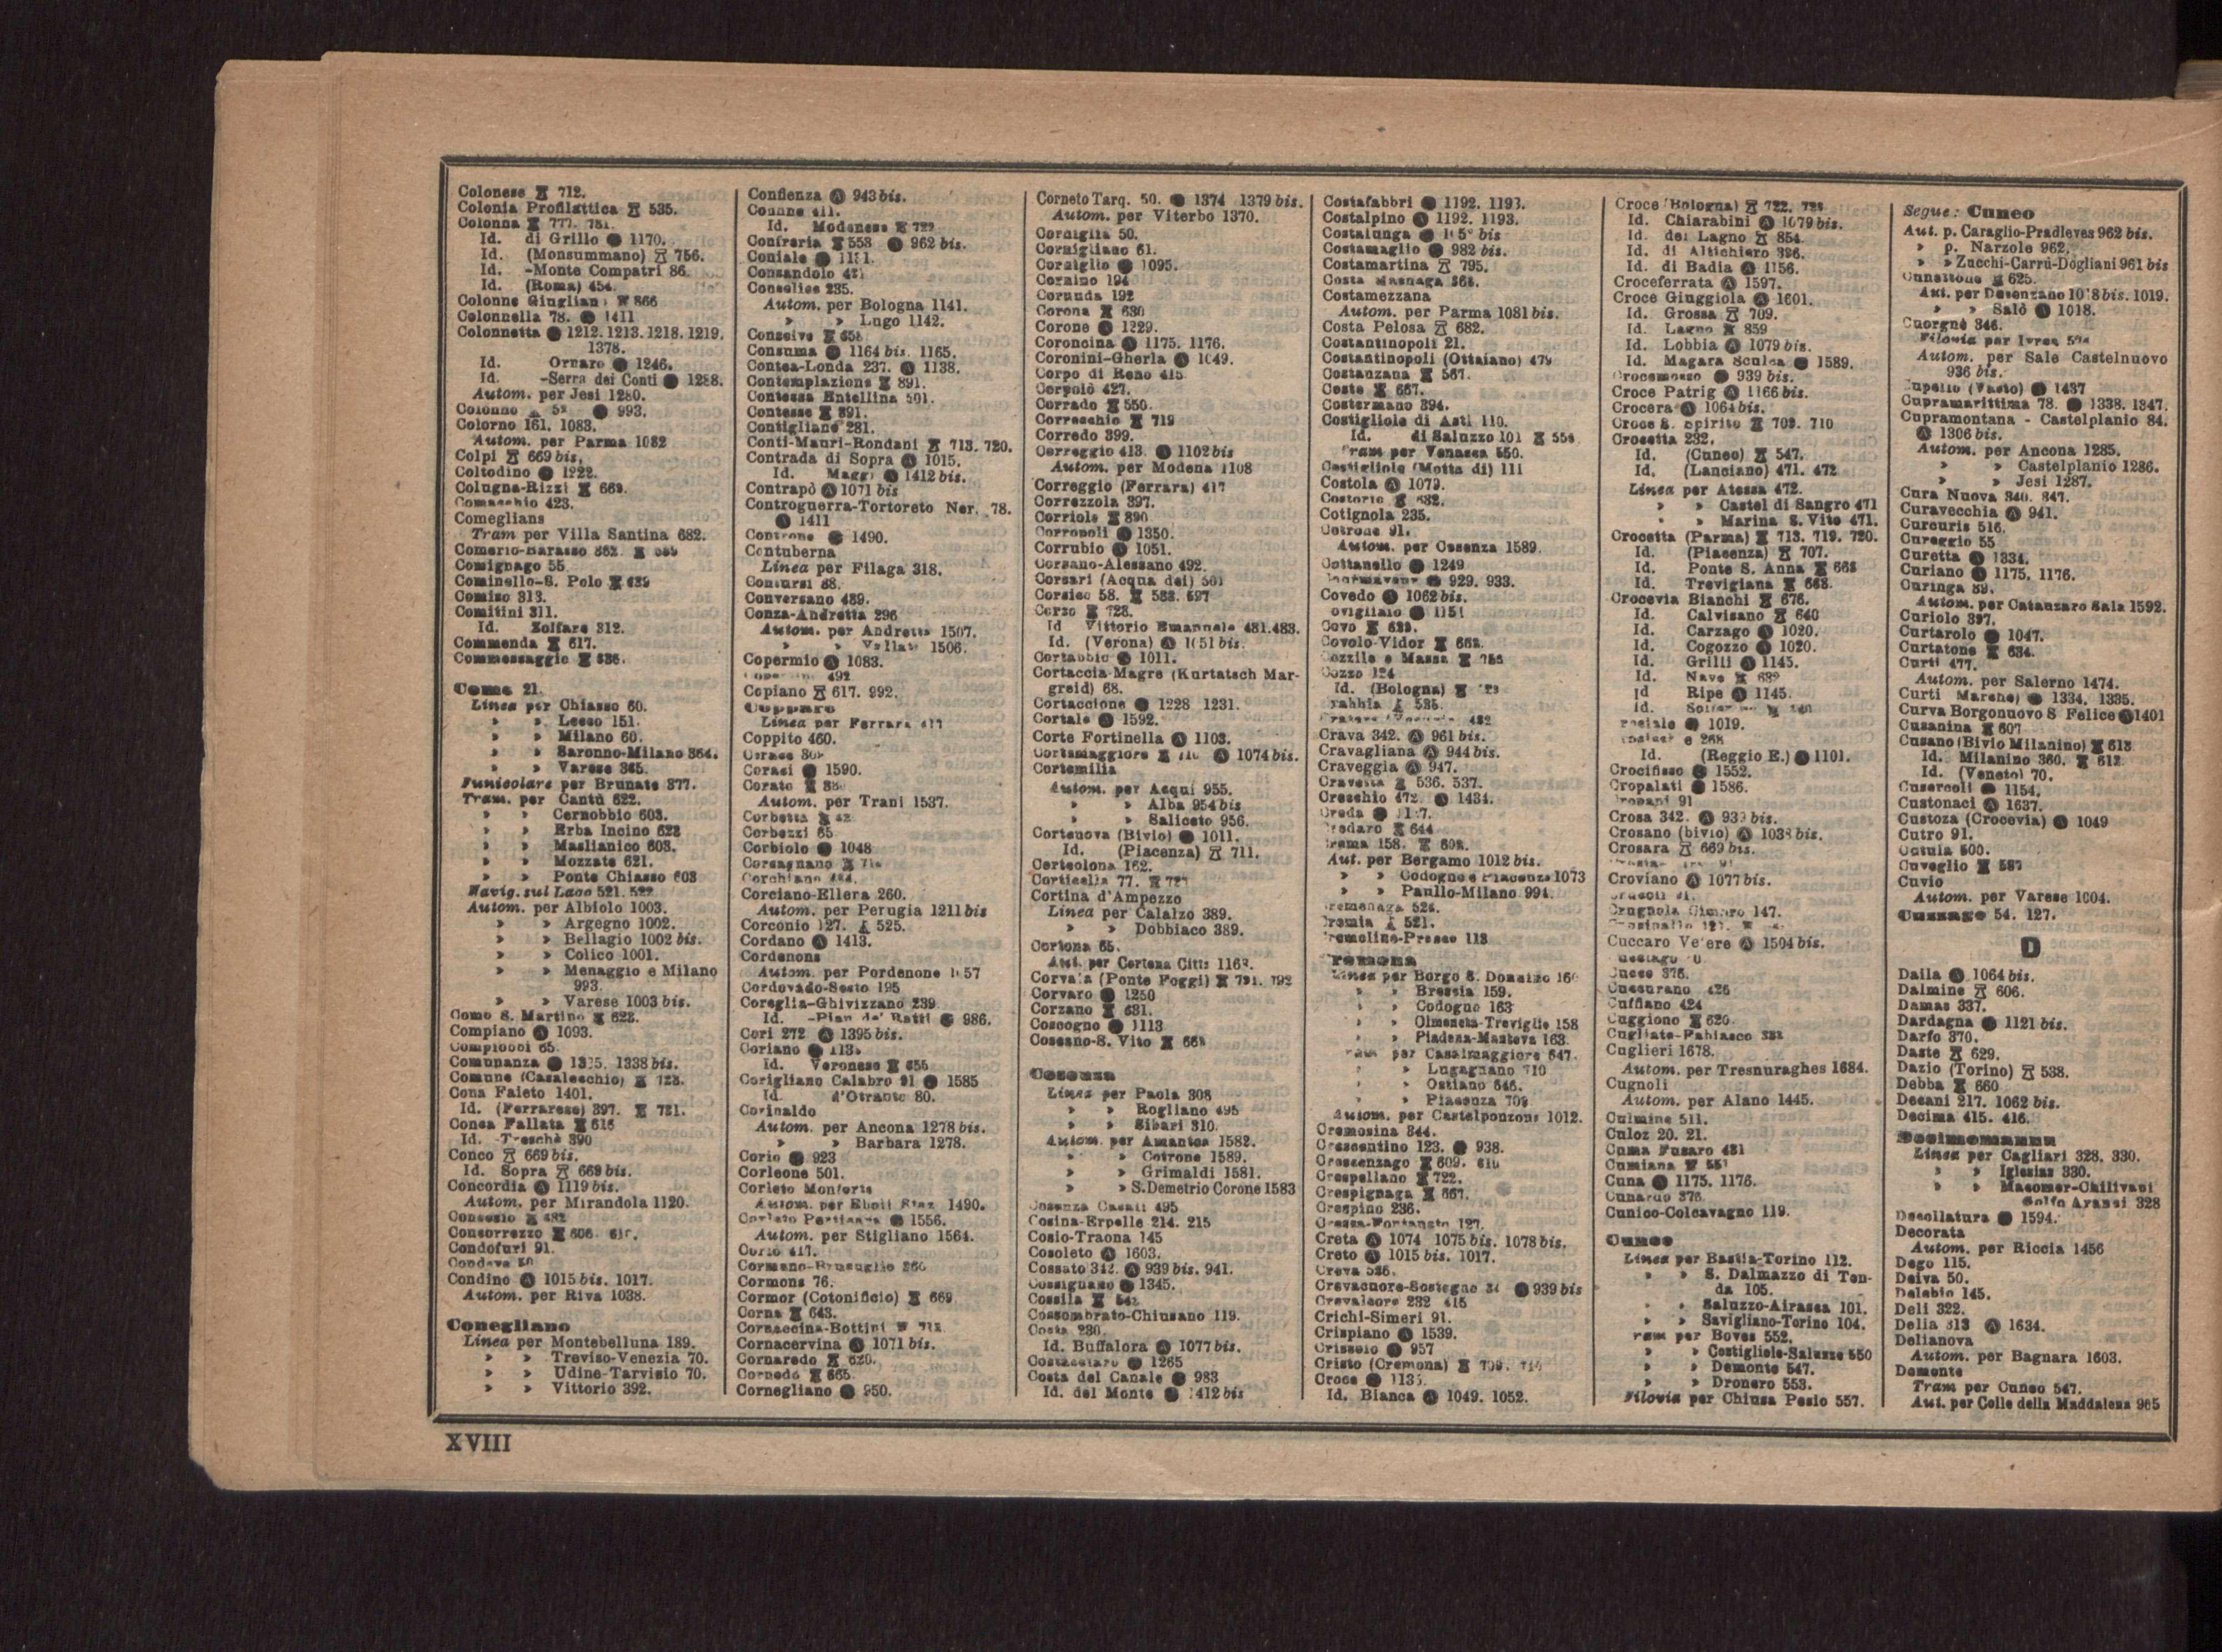 Colonese 712.
Colonia Profilattica 535.
Colonna 777. 781.
Id. di Grillo 1170.
Id. (Monsummano) 756.
Id. -Monte Compatri 86.
Id. (Roma) 454.
Colonne 866
Colonnella 78. 1411
Colonnetta 1212. 1213. 1218. 1219.
1378.
Id. Ornaro 1246.
Id. -Serra dei Conti 1288.
Autom. per Jesi 1280.
Colonno 993.
Colorno 161. 1083.
Autom. per Parma 1082
Colpi 669 bis.
Coltodino 1222.
Colugna-Rizzi 669.
Comacchio 423.
Comeglians
Tram per Villa Santina 682.
Comerio-Barasso 362.
Comignago 55
Cominello-S. Polo 639
Comiso 313.
Comitini 311.
Id. Zolfare 312.
Commenda 617.
Commessaggio 636.
Como 21.
Linea per Chiasso 60.
» » Lecco 151.
» » Milano 60.
» » Saronno-Milano 364.
» » Varese 365.
Funicolare per Brunate 877.
Tram. per Cantù 622.
» » Cernobbio 603.
» » Erba Incino 622
» » Maslianico 603.
» » Mozzate 621.
» » Ponte Chiasso 603
Navig. sul Lago 521. 522
Autom. per Albiolo 1003.
» » Argegno 1002.
» » Bellagio 1002 bis.
» » Colico 1001.
» » Menaggio e Milano
993.
» » Varese 1003 bis.
Como S. Martino 623.
Compiano 1093.
Compiobbi 65.
Comunanza 1338 bis.
Comune (Casalecchio) 723.
Cona Faleto 1401.
Id. (Ferrarese) 397. 731.
Conca Fallata 616
Id. -Treschè 390
Conco 669 bis.
Id. Sopra 669 bis.
Concordia 1119 bis.
Autom. per Mirandola 1120.
Concesio
Concorrezzo 606.
Condofuri 91.
Condove
Condino 1015 bis. 1017.
Autom. per Riva 1038.
Conegliano
Linea per Montebelluna 189.
» » Treviso-Venezia 70.
» » Udine-Tarvisio 70.
» » Vittorio 392.
Confienza 943 bis.
Id. Modenese
Confreria 553 962 bis.
Coniale
Consandolo
Conselice 235.
Autom. per Bologna 1141.
» » Lugo 1142.
Conselve 658
Consuma 1164 bis. 1165.
Contea-Londa 237. 1138.
Contemplazione 891.
Contessa Entellina 501.
Contesse 891.
Contigliano 281.
Conti-Mauri-Rondani 713. 720.
Contrada di Sopra 1015.
Id. 1412 bis.
Contrapò 1071 bis
Controguerra-Tortoreto Ner. 78.
1411
Controne 1490.
Contuberna
Linea per Filaga 318.
Contursi 88.
Conversano 489.
Conza-Andretta 296
Autom. per Andretta 1507.
» » 1506.
Copermio 1083.
492
Copiano 617. 992.
Copparo
Linea per Ferrara
Coppito 460.
Coraci 1590.
Corato
Autom. per Trani 1537.
Corbetta
Corbezzi 65
Corbiolo 1048
Corchiano
Corciano-Ellera 260.
Autom. per Perugia 1211 bis
Corconio 127. 525.
Cordano 1413.
Cordenons
Autom. per Pordenone
Cordovado-Sesto 195
Coreglia-Ghivizzano 239
Id. 986.
Cori 272 1395 bis.
Coriano
Id. Veronese 655
Corigliano Calabro 91 1585
Id. d'Otranto 80.
Corinaldo
Autom. per Ancona 1278 bis.
» » Barbara 1278.
Corio 923
Corleone 501.
Corleto Monforte
Autom. per Eboli 1490.
1556.
Autom. per Stigliano 1564.
Cormano-Brusuglio
Cormons 76.
Cormor (Cotonificio) 669
Corna 643.
Cornaccina-Bottini
Cornacervina 1071 bis.
Cornaredo 620.
Cornedo 665.
Cornegliano 950.
Corneto Tarq. 50. 1374 1379 bis.
Autom. per Viterbo 1370.
Corniglia 50.
Cornigliano 61.
Corniglio 1095.
Cornino 194
Cornuda 192
Corona 630
Corone 1229.
Coroncina 1175. 1176.
Coronini-Gherla 1049.
Corpo di Reno 415
Corpolò 427.
Corrado 550.
Correcchio 719
Corredo 399.
Correggio 413. 1102 bis
Autom. per Modena 1108
Correggio (Ferrara) 417
Correzzola 397.
Corriolo 890
Corropoli 1350.
Corrubio 1051.
Corsano-Alessano 492.
Corsari (Acqua dei)
Corsico 58. 583. 597
Corso 728.
Id Vittorio Emanuele 481. 483.
Id. (Verona) 1051 bis.
Cortabbio 1011.
Cortaccia-Magrè (Kurtatsch Mar-
greid) 68.
Cortaccione 1228 1231.
Cortale 1592.
Corte Fortinella 1103.
Cortemaggiore 1074 bis.
Cortemilia
Autom. per Acqui 955.
» » Alba 954 bis
» » Saliceto 956.
Cortenova (Bivio) 1011.
Id. (Piacenza) 711.
Corteolona 162.
Corticella 77.
Cortina d'Ampezzo
Linea per Calalzo 389.
» » Dobbiaco 389.
Cortona 65.
Aut. per Cortona Città 1163.
Corvaia (Ponte Foggi) 791. 792
Corvaro 1250
Corzano 631.
Coscogno 1113
Coseano-S. Vito
Cosenza
Linea per Paola 308
» » Rogliano 495
» » Sibari 310.
Autom. per Amantea 1582.
» » Cotrone 1589.
» » Grimaldi 1581.
» » S. Demetrio Corone 1583
Cosenza Casali 495
Cosina-Erpelle 214. 215
Cosio-Traona 145
Cosoleto 1603.
Cossato 342. 939 bis. 941.
Cossignano 1345.
Cossila 542
Cossombrato-Chiusano 119.
Costa 230.
Id. Buffalora 1077 bis.
Costacciaro 1265
Costa del Canale 983
Id. del Monte 1412 bis
Costafabbri 1192. 1193.
Costalpino 1192. 1193.
Costalunga
Costamaglio 982 bis.
Costamartina 795.
Costa Masnaga 368.
Costamezzana
Autom. per Parma 1081 bis.
Costa Pelosa 682.
Costantinopoli 21.
Costantinopoli (Ottaiano) 479
Costanzana 567.
Coste 667.
Costermano 394.
Costigliole di Asti 110.
Id. di Saluzzo 101
Tram per Venasca 550.
Costigliole (Motta di) 111
Costola 1079.
Costorio 632.
Cotignola 235.
Cotrone 91.
Autom. per Cosenza 1589.
Cottanello 1249
929. 933.
Covedo 1062 bis.
Covigliaio 1151
Covo 629.
Covolo-Vidor 662.
Cozzile e Massa 756
Cozzo 124
Id. (Bologna)
Crabbia 525.
Crava 342. 961 bis.
Cravagliana 944 bis.
Craveggia 947.
Cravetta 536. 537.
Crecchio 472. 1434.
Creda
Credaro 644
Crema 158. 602.
Aut. per Bergamo 1012 bis.
» » Codogno e Piacenza 1073
» » Paullo-Milano 994.
Cremenaga 524.
Cremia 521.
Cremolino-Prasco 113
Cremona
Linea per Borgo S. Donnino 160
» » Brescia 159.
» » Codogno 163
» » Olmeneta-Treviglio 158
» » Piadena-Mantova 163.
Tram per Casalmaggiore 647.
» » Lugagnano 710
» » Ostiano 646.
» » Piacenza 709
Autom. per Castelponzone 1012.
Cremosina 344.
Crescentino 123. 938.
Crescenzago 609. 610
Crespellano 722.
Crespignaga 667.
Crespino 236.
Cressa-Fontaneto 127.
Creta 1074 1075 bis. 1078 bis.
Creto 1015 bis. 1017.
Creva 526.
Crevacuore-Sostegno 939 bis
Crevalcore 232 415
Crichi-Simeri 91.
Crispiano 1539.
Crissolo 957
Cristo (Cremona) 709. 710
Croce
Id. Bianca 1049. 1052.
Croce (Bologna) 722. 723
Id. Chiarabini 1079 bis.
Id. del Lagno 854.
Id. di Altichiero 396.
Id. di Badia 1156.
Croceferrata 1597.
Croce Giuggiola 1601.
Id. Grossa 709.
Id. Lagno 859
Id. Lobbia 1079 bis.
Id. Magara Sculca 1589.
Crocemosso 939 bis.
Croce Patrig 1166 bis.
Crocera 1064 bis.
Croce S. Spirito 709. 710
Crocetta 232.
Id. (Cuneo) 547.
Id. (Lanciano) 471. 472
Linea per Atessa 472.
» » Castel di Sangro 471
» » Marina S. Vito 471.
Crocetta (Parma) 713. 719. 720.
Id. (Piacenza) 707.
Id. Ponte S. Anna 668
Id. Trevigiana 668.
Crocevia Bianchi 676.
Id. Calvisano 640
Id. Carzago 1020.
Id. Cogozzo 1020.
Id. Grilli 1145.
Id. Nave 632
Id Ripe 1145.
Id.
Crociale 1019.
268
Id. (Reggio E.) 1101.
Crocifisso 1552.
Cropalati 1586.
Cropani 91
Crosa 342. 939 bis.
Crosano (bivio) 1038 bis.
Crosara 669 bis.
Croviano 1077 bis.
Crugnola Cimbro 147.
Crusinallo 127.
Cuccaro Vetere 1504 bis.
Cucco 376.
Cuccurano 426
Cuffiano 424
Cuggiono 620.
Cugliate-Fabiasco
Cuglieri 1678.
Autom. per Tresnuraghes 1684.
Cugnoli
Autom. per Alano 1445.
Culmine 511.
Culoz 20. 21.
Cuma Fusaro 481
Cumiana 551
Cuna 1175. 1176.
Cunardo 376.
Cunico-Colcavagno 119.
Cuneo
Linea per Bastia-Torino 112.
» » S. Dalmazzo di Ten-
da 105.
» » Saluzzo-Airasca 101.
» » Savigliano-Torino 104.
Tram per Boves 552.
» » Costigliole-Saluzzo 550
» » Demonte 547.
» » Dronero 553.
Filovia per Chiusa Pesio 557.
Segue: Cuneo
Aut. p. Caraglio-Pradleves 962 bis.
» p. Narzole 962.
» » Zucchi-Carrù-Dogliani 961 bis
Cunettone 625.
Aut. per Desenzano 1018 bis. 1019.
» » Salò 1018.
Cuorgnè 346.
Filovia per Ivrea
Autom. per Sale Castelnuovo
936 bis.
Cupello (Vasto) 1437
Cupramarittima 78. 1338. 1347.
Cupramontana - Castelplanio 84.
1306 bis.
Autom. per Ancona 1285.
» » Castelplanio 1286.
» » Jesi 1287.
Cura Nuova 340. 347.
Curavecchia 941.
Curcuris 516.
Cureggio 55
Curetta 1334.
Curiano 1175. 1176.
Curinga 89.
Autom. per Catanzaro Sala 1592.
Curiolo 397.
Curtarolo 1047.
Curtatone 634.
Curti 477.
Autom. per Salerno 1474.
Curti Marche) 1334. 1335.
Curva Borgonuovo S Felice 1401
Cusanina 607
Cusano (Bivio Milanino) 613
Id. Milanino 360. 612
Id. (Veneto) 70.
Cusercoli 1154.
Custonaci 1637.
Custoza (Crocevia) 1049
Cutro 91.
Cutula 500.
Cuveglio 587
Cuvio
Autom. per Varese 1004.
Cuzzago 54. 127.
D
Daila 1064 bis.
Dalmine 606.
Damas 337.
Dardagna 1121 bis.
Darfo 370.
Daste 629.
Dazio (Torino) 538.
Debba 660
Decani 217. 1062 bis.
Decima 415. 416.
Decimomannu
Linea per Cagliari 328. 330.
» » Iglesias 330.
» » Macomer-Chilivani
Golfo Aranci 328
Decollatura 1594.
Decorata
Autom. per Riccia 1456
Dego 115.
Deiva 50.
Delebio 145.
Deli 322.
Delia 313 1634.
Delianova
Autom. per Bagnara 1603.
Demonte
Tram per Cuneo 547.
Aut. per Colle della Maddalena 965
XVIII